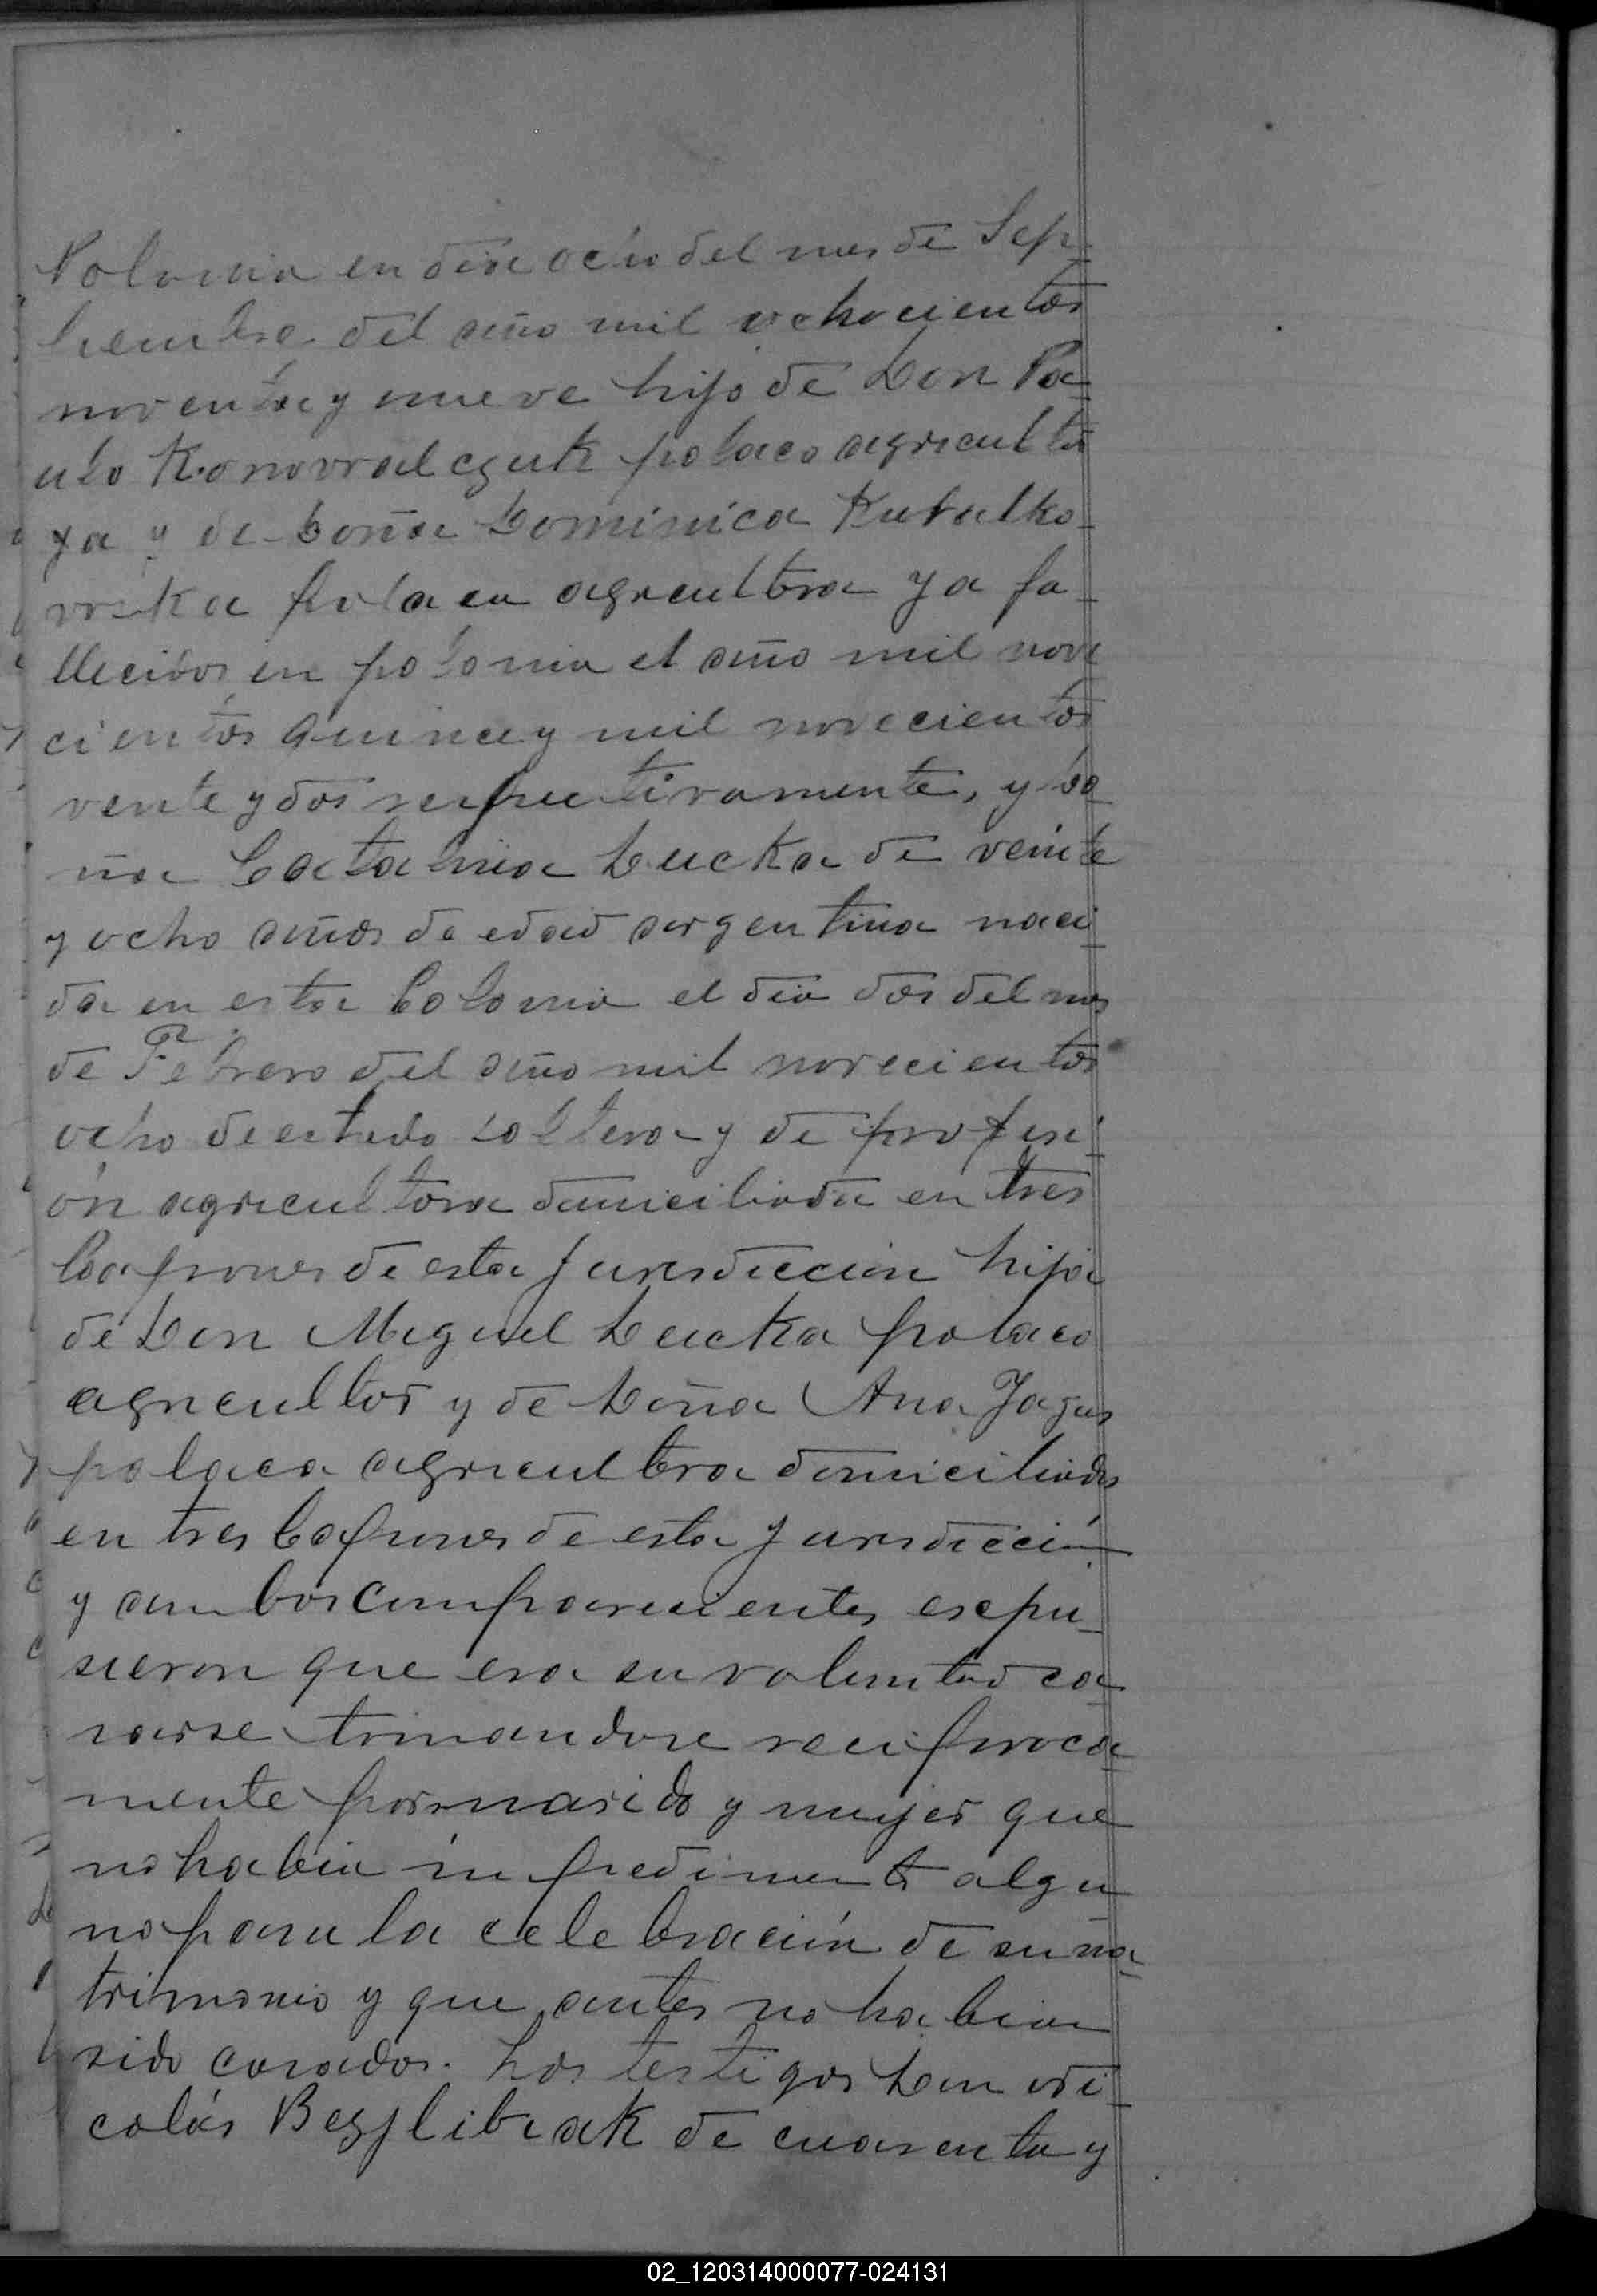 Polonia en dia ocho del mes de Sep-
tiembre del año mil ochocientos
noventa y nueve hijo de Don Pa-
ulo Konovralczuk polaco agricultor
ya y de Doña Dominica Kuvalko-
vska polaca agricultora ya fa-
llecidos en polonia el año mil nove
cientos quince y mil novecientos
veinte y dos respectivamente, y do-
ña Catalina Ducka de veinte
y ocho años de edad argentina naci-
da en esta Colonia el dia dos del mes
de Febrero del año mil novecientos
ocho de estado soltera y de profesi-
ón agricultora domiciliada en tres
Capones de esta jurisdiccion hija
de Don Miguel Ducka polaco
agricultor y de Doña Ana Jagus
polaca agricultora domiciliados
en tres Capones de esta jurisdicción
y ambos comparecientes expu-
sieron que era su voluntad ca-
sarse tomandose reciproca-
mente por marido y mujer que
no habia impedimento algu-
no para la celebración de su ma-
trimonio y que antes no habian
sido casados. Los testigos Don Ni-
colás Bezflibiak de cuarenta y
02_120314000077-024131